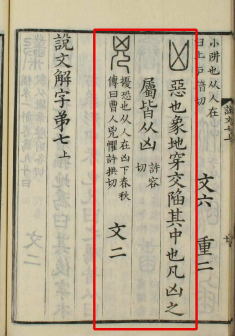 小阱也从人在
臼上戶猪切
文六 重二
凶 惡也象地穿交陷其中也凡凶之
屬皆从凶 許容
切
兇 擾恐也从人在凶下春秋
傳曰曹人兇懼許拱切
文二
說文解字弟七上